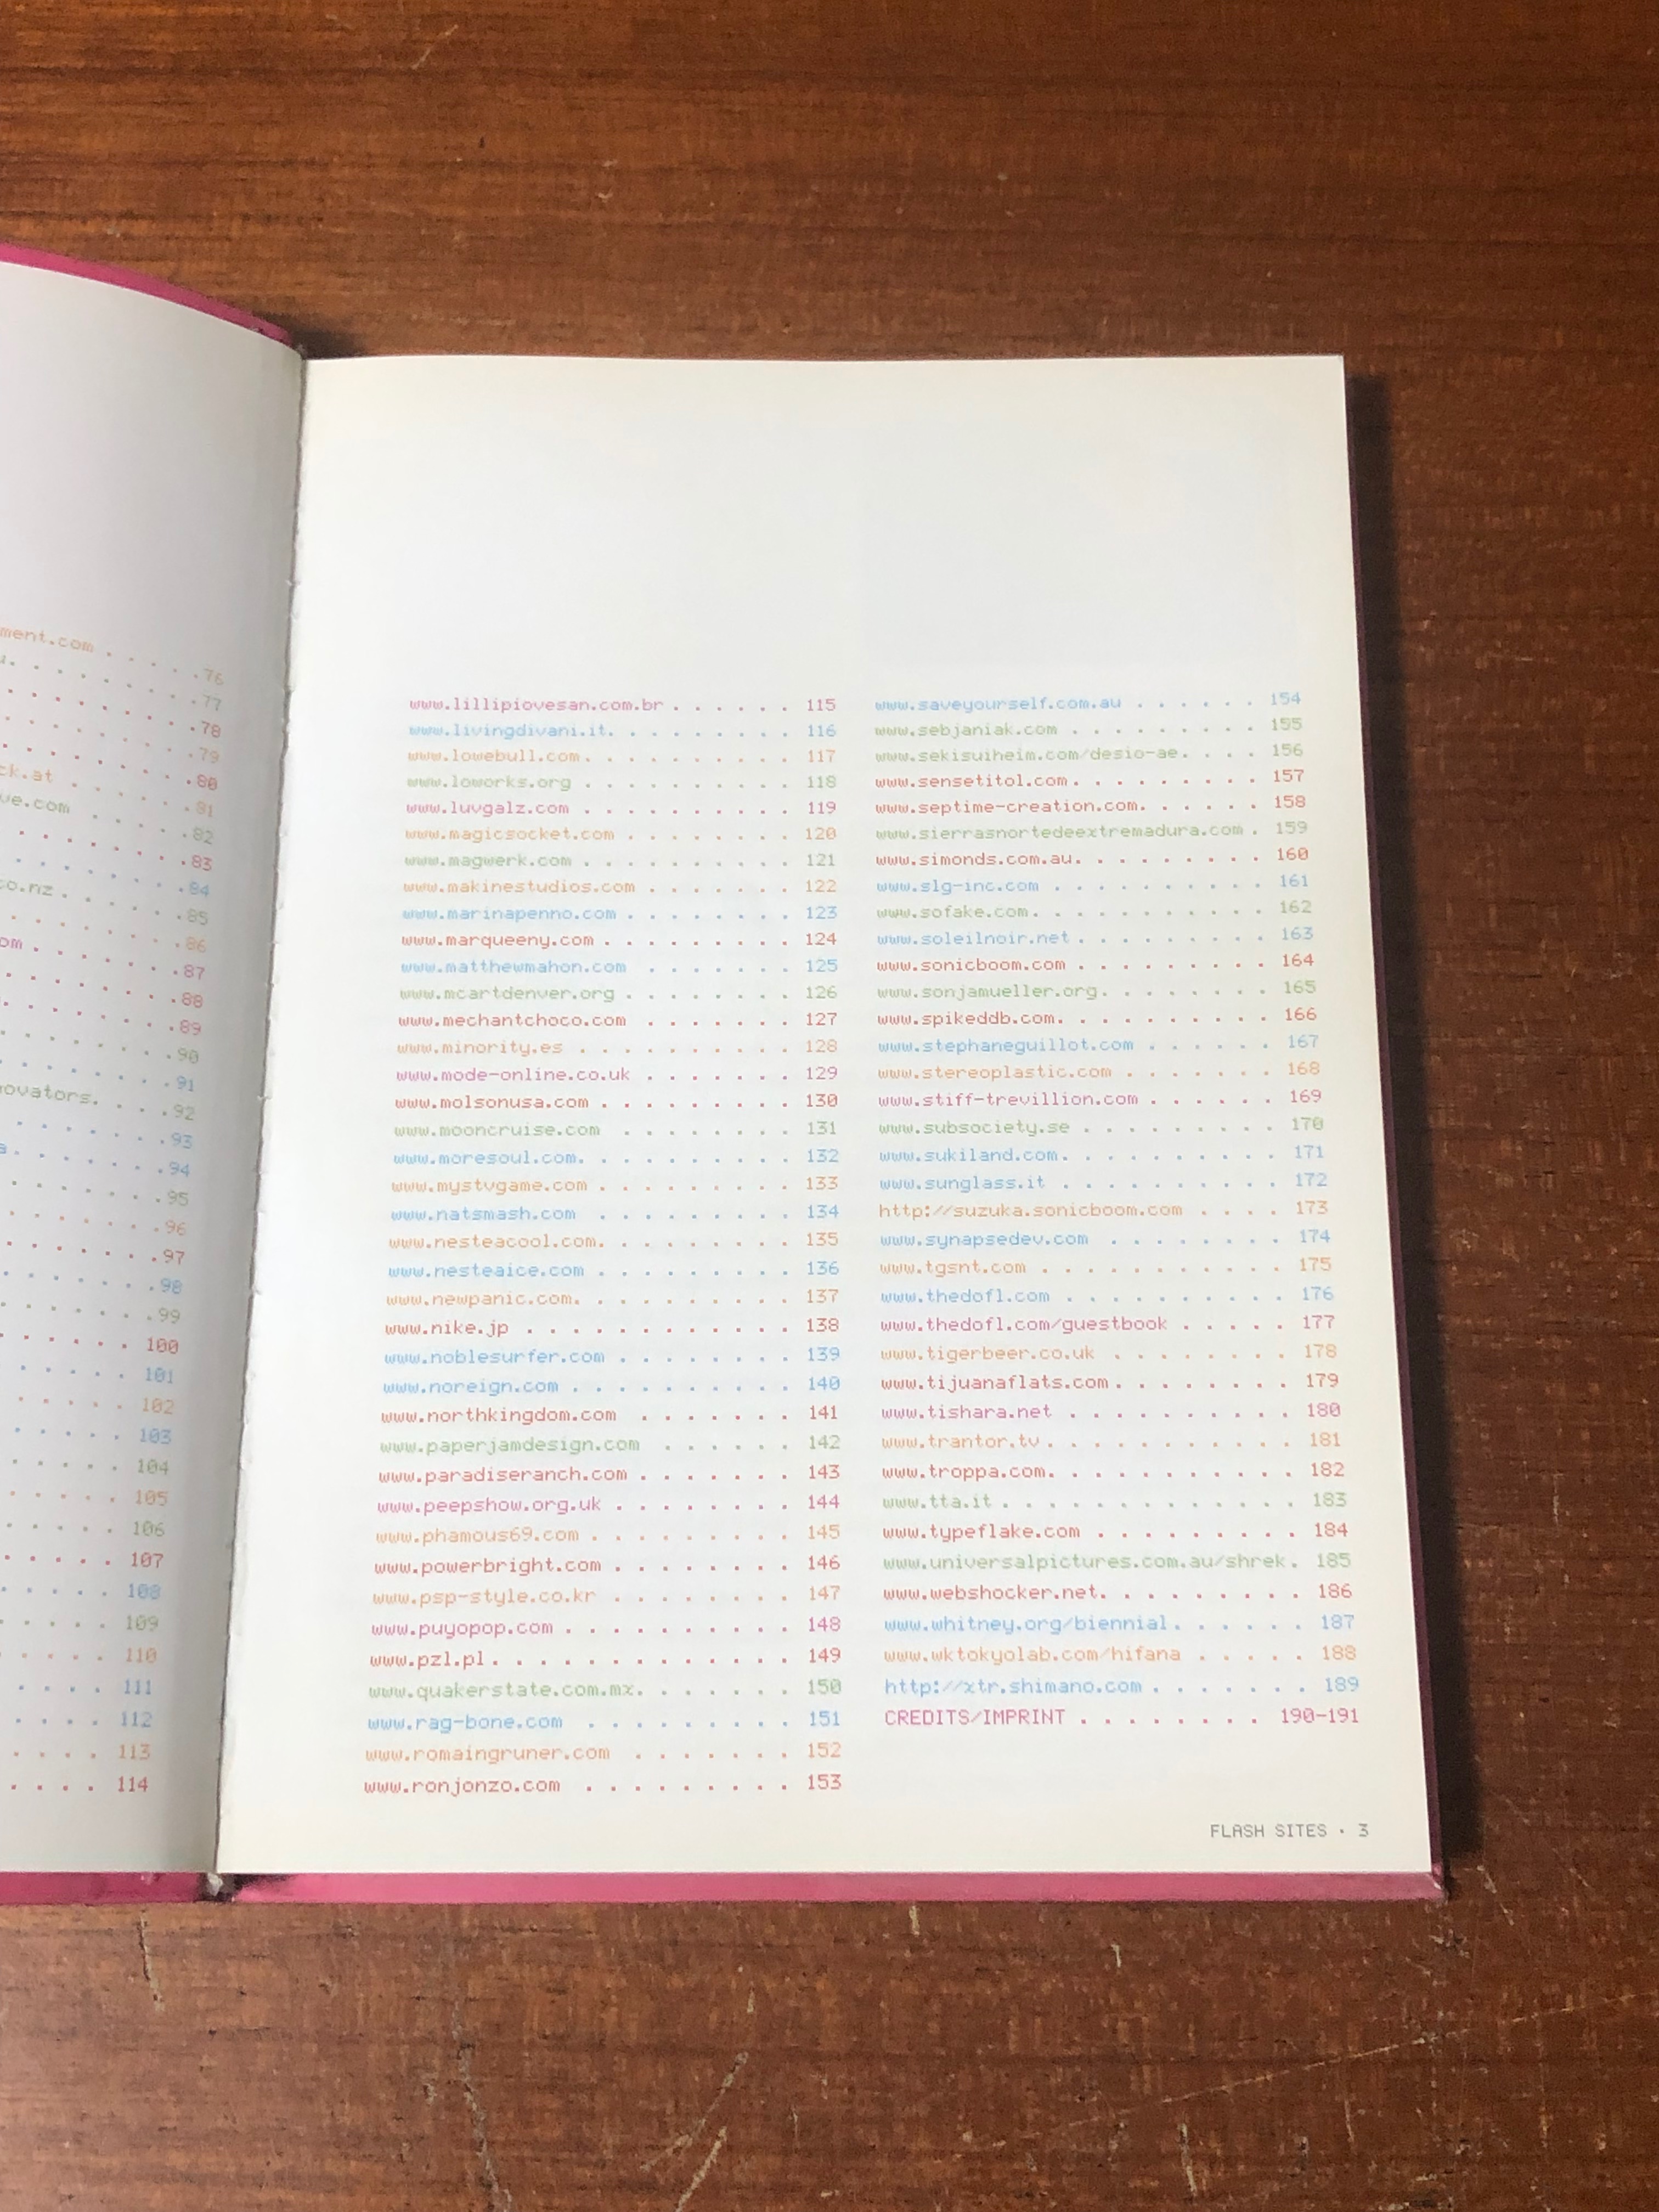 ment.com . . . . .76
. . . . . . . .77
. . . . . . . .78
. . . . . . . .79
. . . . . . . .80
ck.at . . . . . .81
ve.com . . . . .82
. . . . . . . .83
. . . . . . . .84
co.nz . . . . . .85
. . . . . . . .86
om . . . . . . .87
. . . . . . . .88
. . . . . . . .89
. . . . . . . .90
. . . . . . . .91
novators. . . .92
. . . . . . . .93
a. . . . . . . .94
. . . . . . . .95
. . . . . . . .96
. . . . . . . .97
. . . . . . . .98
. . . . . . . .99
. . . . . . 100
. . . . . . 101
. . . . . . 102
. . . . . . 103
. . . . . . 104
. . . . . . 105
. . . . . . 106
. . . . . . 107
. . . . . . 108
. . . . . . 109
. . . . . . 110
. . . . . . 111
. . . . . . 112
. . . . . . 113
. . . . . . 114
www.lillipiovesan.com.br . . . . . . 115
www.livingdivani.it. . . . . . . . . 116
www.lowebull.com . . . . . . . . . . 117
www.loworks.org . . . . . . . . . . 118
www.luvgalz.com . . . . . . . . . . 119
www.magicsocket.com . . . . . . . . 120
www.magwerk.com . . . . . . . . . . 121
www.makinestudios.com . . . . . . . 122
www.marinapenno.com . . . . . . . . 123
www.marqueeny.com . . . . . . . . . 124
www.matthewmahon.com . . . . . . . 125
www.mcartdenver.org . . . . . . . . 126
www.mechantchoco.com . . . . . . . 127
www.minority.es . . . . . . . . . . 128
www.mode-online.co.uk . . . . . . . 129
www.molsonusa.com . . . . . . . . . 130
www.mooncruise.com . . . . . . . . 131
www.moresoul.com. . . . . . . . . . 132
www.mystvgame.com . . . . . . . . . 133
www.natsmash.com . . . . . . . . . 134
www.nesteacool.com. . . . . . . . . 135
www.nesteaice.com . . . . . . . . . 136
www.newpanic.com. . . . . . . . . . 137
www.nike.jp . . . . . . . . . . . . 138
www.noblesurfer.com . . . . . . . . 139
www.noreign.com . . . . . . . . . . 140
www.northkingdom.com . . . . . . . 141
www.paperjamdesign.com . . . . . . 142
www.paradiseranch.com . . . . . . . 143
www.peepshow.org.uk . . . . . . . . 144
www.phamous69.com . . . . . . . . . 145
www.powerbright.com . . . . . . . . 146
www.psp-style.co.kr . . . . . . . . 147
www.puyopop.com . . . . . . . . . . 148
www.pzl.pl. . . . . . . . . . . . . 149
www.quakerstate.com.mx. . . . . . . 150
www.rag-bone.com . . . . . . . . . 151
www.romaingruner.com . . . . . . . 152
www.ronjonzo.com . . . . . . . . . 153
www.saveyourself.com.au . . . . . . 154
www.sebjaniak.com . . . . . . . . . 155
www.sekisuiheim.com/desio-ae. . . . 156
www.sensetitol.com. . . . . . . . . 157
www.septime-creation.com. . . . . . 158
www.sierrasnortedeextremadura.com . 159
www.simonds.com.au. . . . . . . . . 160
www.slg-inc.com . . . . . . . . . . 161
www.sofake.com. . . . . . . . . . . 162
www.soleilnoir.net . . . . . . . . . 163
www.sonicboom.com . . . . . . . . . 164
www.sonjamueller.org. . . . . . . . 165
www.spikeddb.com. . . . . . . . . . 166
www.stephaneguillot.com . . . . . . 167
www.stereoplastic.com . . . . . . . 168
www.stiff-trevillion.com . . . . . . 169
www.subsociety.se . . . . . . . . . 170
www.sukiland.com. . . . . . . . . . 171
www.sunglass.it . . . . . . . . . . 172
http://suzuka.sonicboom.com . . . . 173
www.synapsedev.com . . . . . . . . 174
www.tgsnt.com . . . . . . . . . . . 175
www.thedofl.com . . . . . . . . . . 176
www.thedofl.com/guestbook . . . . . 177
www.tigerbeer.co.uk . . . . . . . . 178
www.tijuanaflats.com . . . . . . . . 179
www.tishara.net . . . . . . . . . . 180
www.trantor.tv . . . . . . . . . . . 181
www.troppa.com. . . . . . . . . . . 182
www.tta.it . . . . . . . . . . . . . 183
www.typeflake.com . . . . . . . . . 184
www.universalpictures.com.au/shrek. 185
www.webshocker.net. . . . . . . . . 186
www.whitney.org/biennial. . . . . . 187
www.wktokyolab.com/hifana . . . . . 188
http://xtr.shimano.com . . . . . . . 189
CREDITS/IMPRINT . . . . . . . . 190-191
FLASH SITES · 3